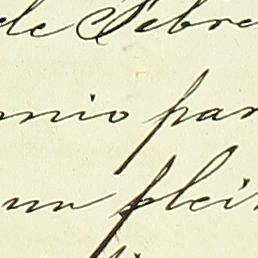 de Febre
nio par
un plei